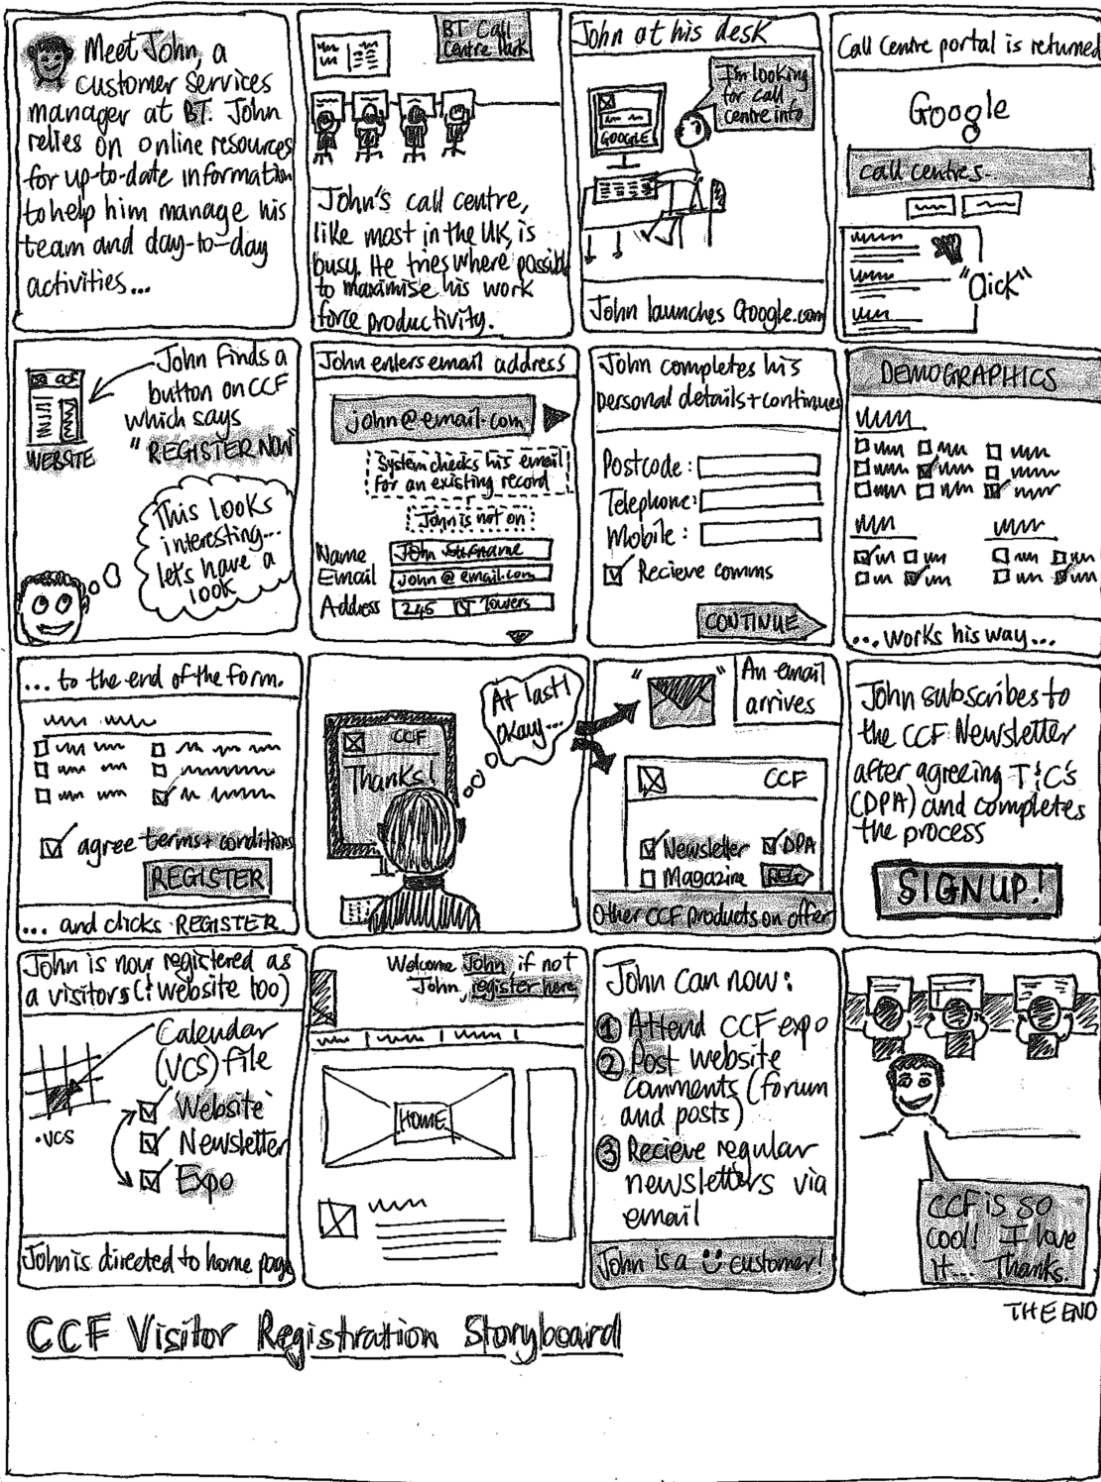 Meet John, a
customer services
manager at BT. John
relies on online resources
for up-to-date information
to help him manage his
team and day-to-day
activities...
BT Call
Centre Park
John's call centre,
like most in the UK, is
busy. He tries where possible
to maximise his work
force productivity.
John at his desk
I'm looking
for call
centre info
GOOGLE
John launches Google.com
Call Centre portal is returned
Google
call centres..
"Click"
John finds a
button on CCF
which says
"REGISTER NOW"
WEBSITE
This looks
interesting...
let's have a
look
John enters email address
john@email.com
System checks his email
for an existing record
John is not on
Name John Surname
Email john@email.com
Address 245 BT Towers
John completes his
personal details + continues
Postcode:
Telephone:
Mobile:
Recieve comms
CONTINUE
DEMOGRAPHICS
...works his way...
... to the end of the form.
agree terms + conditions
REGISTER
... and clicks REGISTER
At last!
okay...
CCF
Thanks!
An email
arrives
CCF
Newsletter DPA
Magazine REG
Other CCF products on offer
John subscribes to
the CCF Newsletter
after agreeing T&C's
(DPA) and completes
the process
SIGN UP!
John is now registered as
a visitors (& website too)
Calendar
(VCS) file
.VCS
Website
Newsletter
Expo
John is directed to home page
Welcome John if not
John, register here
HOME
John can now:
1 Attend CCF expo
2 Post website
comments (forum
and posts)
3 Recieve regular
newsletters via
email
John is a customer!
CCF is so
cool! I love
it... Thanks.
THE END
CCF Visitor Registration Storyboard